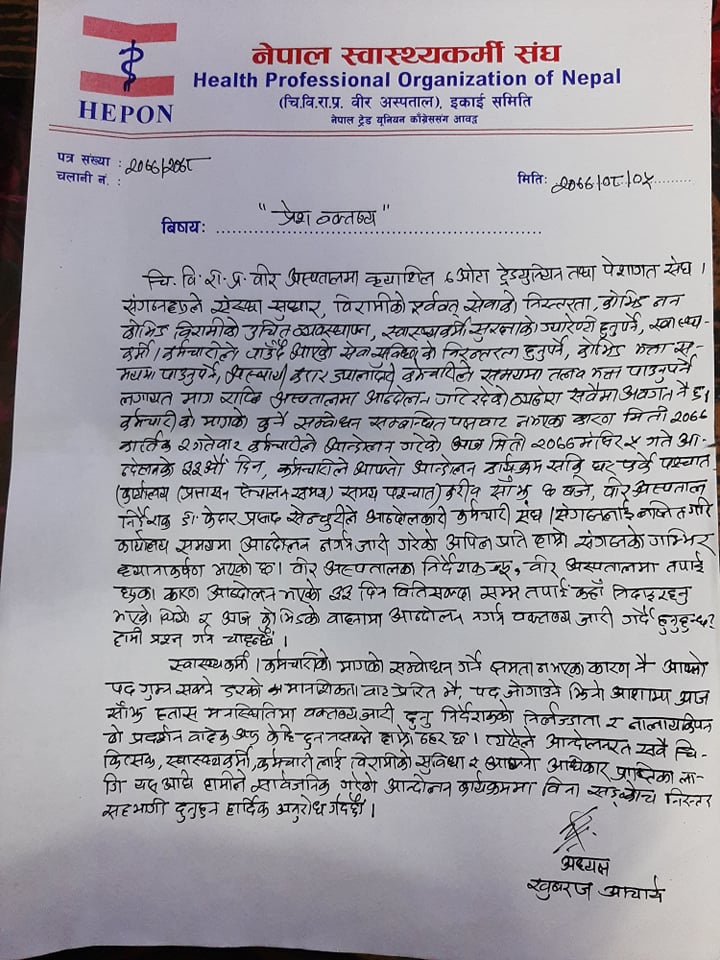 नेपाल स्वास्थ्यकर्मी संघ
Health Professional Organization of Nepal
(चि.वि.रा.प्र. वीर अस्पताल), इकाई समिति
नेपाल ट्रेड यूनियन काँग्रेससंग आवद्व
HEPON
पत्र संख्या : २०७७/२०७८
चलानी नं. :
मिति: २०७७/०८/०५
बिषय: "प्रेश वक्तव्य"
चि. वि. रा. प्र. वीर अस्पतालमा कृयाशिल ६ ओटा ट्रेडयुनियन तथा पेशागत संघ ।
संगठनहरुले संस्था सुधार, विरामीको पूर्ववत् सेवाको निरन्तरता, कोभिड नन
कोभिड विरामीको उचित व्यवस्थापन, स्वास्थ्यकर्मी सुरक्षाको ग्यारेण्टी हुनुपर्ने, स्वास्थ्य
कर्मी । कर्मचारीले पाउँदै आएको सेवा सुविधाको निरन्तरता हुनुपर्ने, कोभिड भत्ता स-
मयमा पाउनुपर्ने, अस्थायी करार ज्यालादारी कर्मचारीले समयमा तलव भत्ता पाउनुपर्ने
लगायत माग राखि अस्पतालमा आन्दोलन गरिरहेको व्यहोरा सवैमा अवगत नै छ।
कर्मचारीको मागको कुनै सम्बोधन सम्बन्धित पक्षवाट नभएका कारण मिती २०७७
कार्तिक २ गतेवाट कर्मचारीले आन्दोलन गरेको आज मिती २०७७ मंसिर ५ गते आ-
न्दोलनको ३३ औं दिन, कर्मचारीले आफ्नो आन्दोलन कार्यक्रम सकि घर फर्के पश्चात
(कार्यालय (प्रशासन संचालन समय) समय पश्चात) करीव साँझ ७ बजे, वीर अस्पताल
निर्देशक डा. केदार प्रसाद सेन्चुरीले आन्दोलनकारी कर्मचारी संघ । संगठनलाई
कार्यालय समयमा आन्दोलन नगर्न जारी गरेको अपिल प्रति हाम्रो संगठनको गम्भिर
ध्यानाकर्षण भएको छ। वीर अस्पतालका निर्देशकज्यू, वीर अस्पतालमा तपाई
का कारण आन्दोलन भएको ३३ दिन वितिसक्दा सम्म तपाई कहाँ निदाइ रहनु
भएको थियो र आज कोभिडको वाहनामा आन्दोलन नगर्न वक्तव्य जारी गर्दै हुनुहुन्छ?
हामी प्रश्न गर्न चाहन्छौं ।
स्वास्थ्यकर्मी । कर्मचारीको मागको सम्बोधन गर्ने क्षमता नभएका कारण नै आफ्नो
पद गुम्न सक्ने डरको मानसिकता वाट प्रेरित भै, पद जोगाउने झिनो आशामा आज
साँझ हतास मनस्थितिमा वक्तव्य जारी हुनु निर्देशकको निर्लज्जता र नालायकिपन
को प्रदर्शन वाहेक अरु केहि हुन नसक्ने हाम्रो ठहर छ। त्यसैले आन्दोलनरत सवै चि-
कित्सक, स्वास्थ्यकर्मी, कर्मचारी लाई विरामीको सुविधा र आफ्नो अधिकार प्राप्तिका ला-
गि यस अघि हामीले सार्वजनिक गरेको आन्दोलन कार्यक्रममा विना सङ्कोच निरन्तर
सहभागी हुनुहुन हार्दिक अनुरोध गर्दछौं ।
अध्यक्ष
खुबराज आचार्य